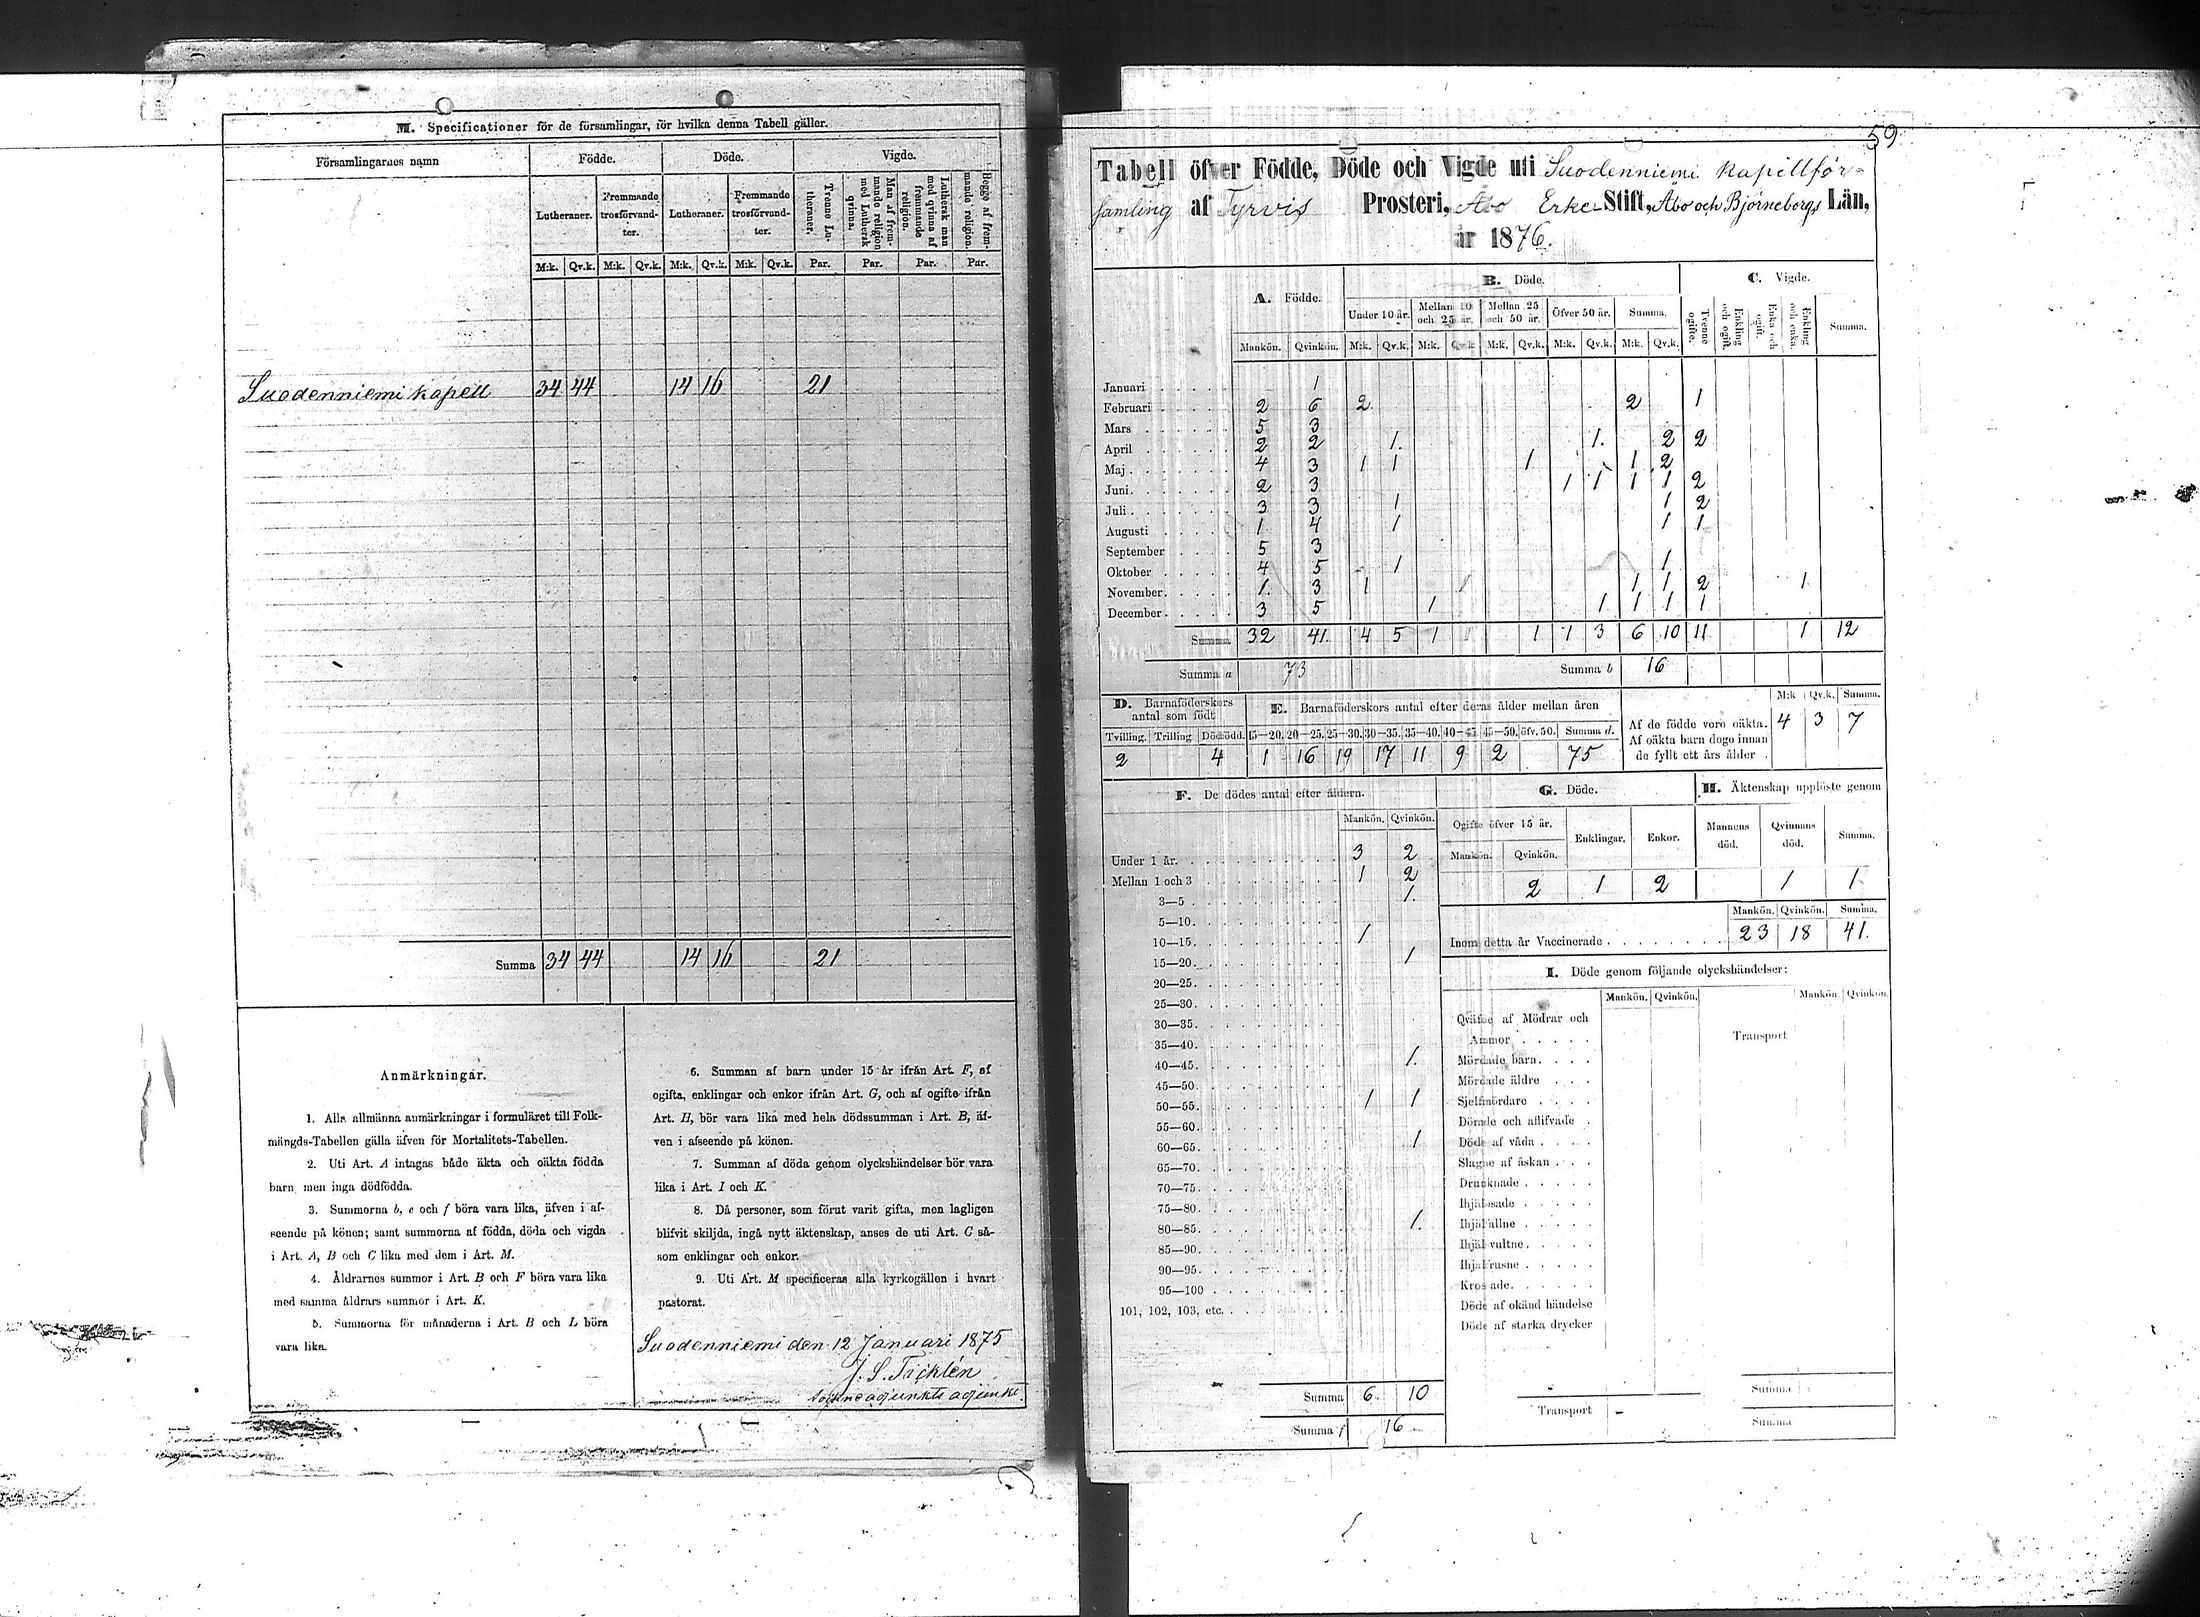 M. Specificationer för de församlingar, för hvilka denna Tabell gäller.
Församlingarnes namn Födde. Döde. Vigde.
Lutheraner. Fremmande trosförvandter. Lutheraner. Fremmande trosförvandter. Tvenne Lutheraner. Man af fremmande religion med Luthersk qvinna. Luthersk man med qvinna af fremmande religion. Begge af fremmande religion.
M:k. Qv.k. M:k. Qv.k. M:k. Qv.k. M:k. Qv.k. Par. Par. Par. Par.
Suodenniemi kapell 34 44 14 16 21
Summa 34 44 14 16 21
Anmärkningar.
1. Alla allmänna anmärkningar i formuläret till Folk-
mängds-Tabellen gälla äfven för Mortalitets-Tabellen.
2. Uti Art. A intagas både äkta och oäkta födda
barn men inga dödfödda.
3. Summorna b, e och f böra vara lika, äfven i af-
seende på könen; samt summorna af födda, döda och vigda
i Art. A, B och C lika med dem i Art. M.
4. Åldrarnes summor i Art. B och F böra vara lika
med samma åldrars summor i Art. K.
5. Summorna för månaderna i Art. B och L böra
vara lika.
6. Summan af barn under 15 år ifrån Art. F, af
ogifta, enklingar och enkor ifrån Art. G, och af ogifte ifrån
Art. H, bör vara lika med hela dödssumman i Art. B, äf-
ven i afseende på könen.
7. Summan af döda genom olyckshändelser bör vara
lika i Art. I och K.
8. Då personer, som förut varit gifta, men lagligen
blifvit skiljda, ingå nytt äktenskap, anses de uti Art. C så-
som enklingar och enkor.
9. Uti Art. M specificeras alla kyrkogällen i hvart
pastorat.
Suodenniemi den 12 Januari 1875
J. S. Ticklén
Sockneadjunkts adjunkt.
59
Tabell öfver Födde, Döde och Vigde uti Suodenniemi Kapellför-
samling af Tyrvis Prosteri, Åbo Erke Stift, Åbo och Björneborgs Län,
år 1876.
A. Födde. B. Döde. C. Vigde.
Under 10 år. Mellan 10 och 25 år. Mellan 25 och 50 år. Öfver 50 år. Summa. Tvenne ogifte. Enkling och ogift. Enka och ogift. Enkling och enka. Summa.
Mankön. Qvinkön. M:k. Qv.k. M:k. Qv.k. M:k. Qv.k. M:k. Qv.k. M:k. Qv.k.
Januari 1
Februari 2 6 2 2 1
Mars 5 3
April 2 2 1. 1. 2 2
Maj 4 3 1 1 1 1 2
Juni 2 3 1 1 1 1 2
Juli 3 3 1 1 2
Augusti 1 4 1 1 1
September 5 3
Oktober 4 5 1 1
November 1. 3 1 1 1 2 1
December 3 5 1 1 1 1 1
Summa 32 41. 4 5 1 1 1 3 6 10 11 1 12
Summa a 73 Summa b 16
D. Barnaföderskors antal som födt
Tvilling. Trilling Dödfödd.
2 4
E. Barnaföderskors antal efter deras ålder mellan åren
15—20. 20—25. 25—30. 30—35. 35—40. 40—45. 45—50. öfv. 50. Summa d.
1 16 19 17 11 9 2 75
M:k Qv.k. Summa.
Af de födde voro oäkta. 4 3 7
Af oäkta barn dogo innan
de fyllt ett års ålder
F. De dödes antal efter åldern.
Mankön. Qvinkön.
Under 1 år. 3 2
Mellan 1 och 3 1 2
3—5 1.
5—10.
10—15. 1
15—20. 1
20—25.
25—30.
30—35.
35—40.
40—45. 1.
45—50.
50—55. 1 1
55—60.
60—65. 1
65—70.
70—75.
75—80.
80—85. 1.
85—90.
90—95.
95—100
101, 102, 103, etc.
Summa 6. 10
Summa f 16
G. Döde.
Ogifte öfver 15 år. Enklingar. Enkor.
Mankön. Qvinkön.
2 1 2
H. Äktenskap upplöste genom
Mannens död. Qvinnans död. Summa.
1 1
Mankön. Qvinkön. Summa.
Inom detta år Vaccinerade 23 18 41.
I. Döde genom följande olyckshändelser:
Mankön. Qvinkön. Mankön. Qvinkön.
Qväfde af Mödrar och
Ammor
Transport
Mördade barn
Mördade äldre
Sjelfmördare
Dömde och aflifvade
Döde af våda
Slagne af åskan
Drunknade
Ihjälfrusne
Döde af okänd händelse
Döde af starka drycker
Transport
Summa
Summa